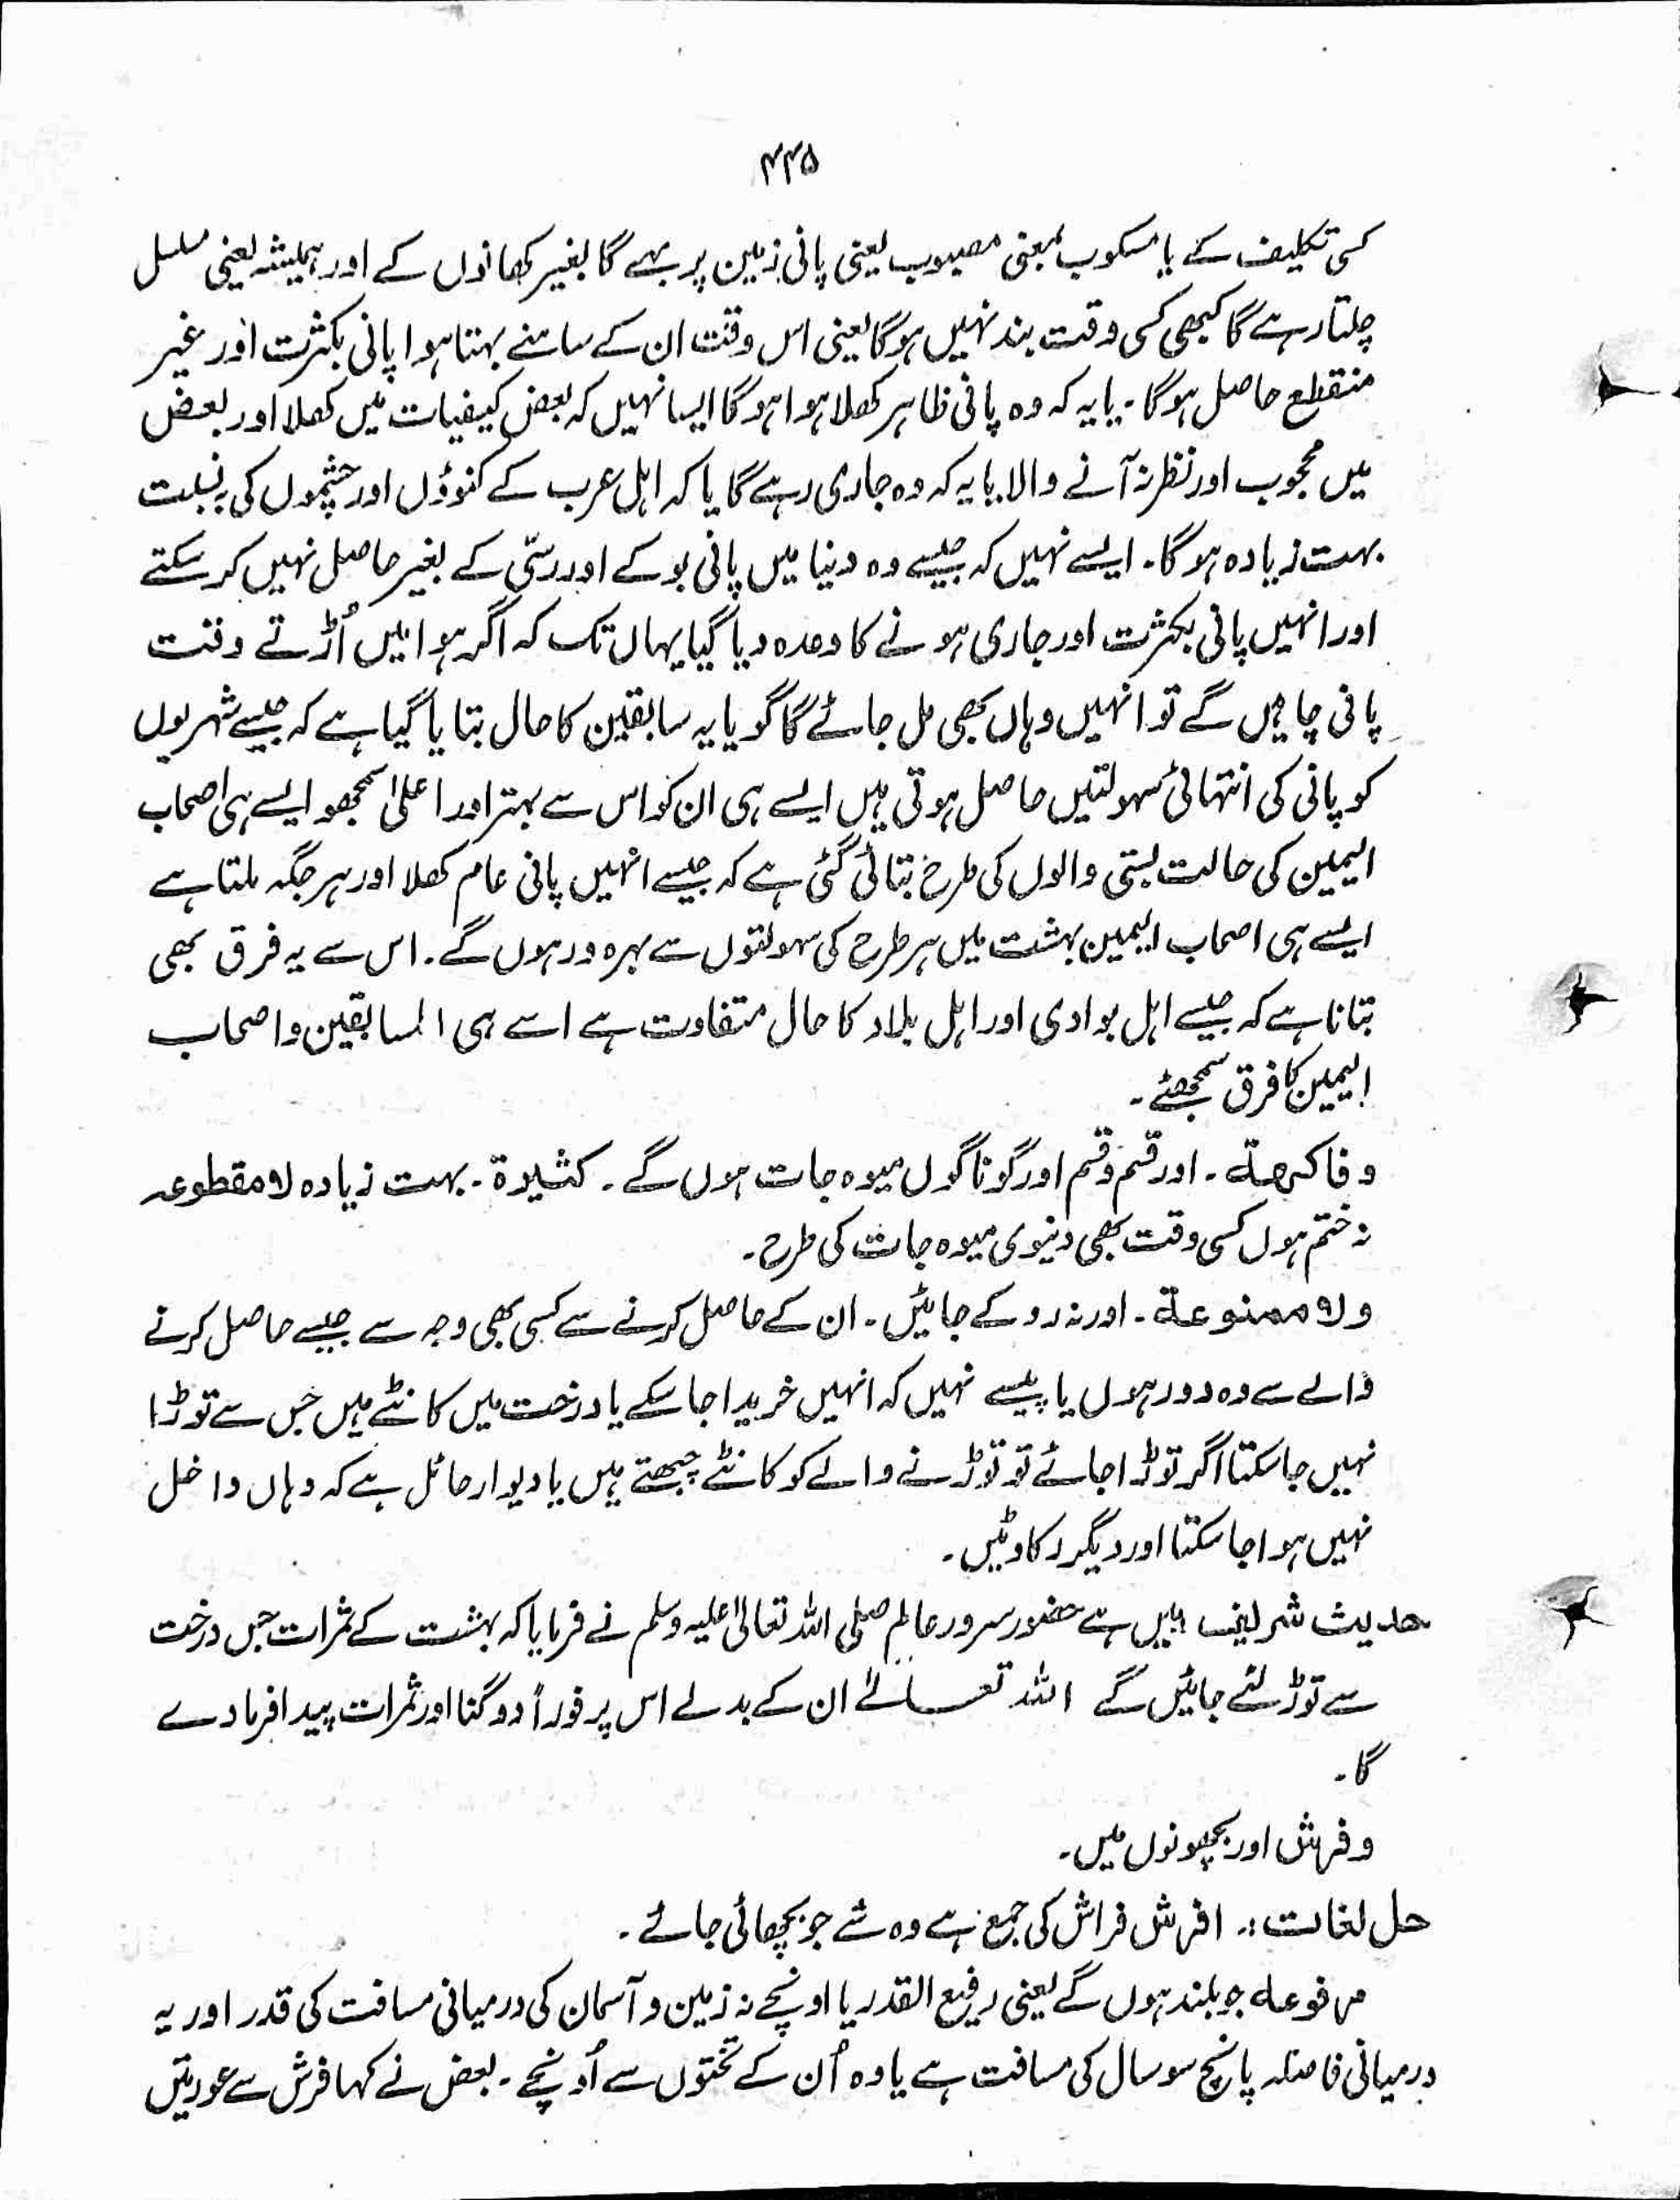 ۴۴۵
کسی تکلیف کے یا مسکوب بمعنی مصبوب یعنی پانی زمین پر بہے گا بغیر کھانوں کے اور ہمیشہ یعنی مسلسل
چلتا رہے گا کبھی کسی وقت بند نہیں ہوگا یعنی اس وقت ان کے سامنے بہتا ہوا پانی بکثرت اور غیر
منقطع حاصل ہوگا ۔ یا یہ کہ وہ پانی ظاہر کھلا ہوا ہوگا ایسا نہیں کہ بعض کیفیات میں کھلا اور بعض
میں محجوب اور نظر نہ آنے والا یا یہ کہ وہ جاری رہے گا یا کہ اہل عرب کے کنوؤں اور چشموں کی بہ نسبت
بہت زیادہ ہوگا ۔ ایسے نہیں کہ جیسے وہ دنیا میں پانی بوکے اور رسّی کے بغیر حاصل نہیں کر سکتے
اور انہیں پانی بکثرت اور جاری ہونے کا وعدہ دیا گیا یہاں تک کہ اگر ہوا میں اُڑتے وقت
پانی چاہیں گے تو انہیں وہاں بھی مل جائے گا گویا یہ سابقین کا حال بتایا گیا ہے کہ جیسے شہریوں
کو پانی کی انتہائی سہولتیں حاصل ہوتی ہیں ایسے ہی ان کو اس سے بہتر اور اعلیٰ سمجھو ایسے ہی اصحاب
الیمین کی حالت بستی والوں کی طرح بتائی گئی ہے کہ جیسے انہیں پانی عام کھلا اور ہر جگہ ملتا ہے
ایسے ہی اصحاب الیمین بہشت میں ہر طرح کی سہولتوں سے بہرہ ور ہوں گے ۔ اس سے یہ فرق بھی
بتانا ہے کہ جیسے اہل بوادی اور اہل بلاد کا حال متفاوت ہے اسے ہی السابقین و اصحاب
الیمین کا فرق سمجھئے ۔
و فاکھۃ ۔ اور قسم و قسم اور گوناگوں میوہ جات ہوں گے ۔ کثیرۃ ۔ بہت زیادہ لا مقطوعہ
نہ ختم ہوں کسی وقت بھی دنیوی میوہ جات کی طرح ۔
ولا ممنوعۃ ۔ اور نہ روکے جائیں ۔ ان کے حاصل کرنے سے کسی بھی وجہ سے جیسے حاصل کرنے
والے سے وہ دور ہوں یا پیسے نہیں کہ انہیں خریدا جا سکے یا درخت میں کانٹے ہیں جس سے توڑا
نہیں جا سکتا اگر توڑا جائے تو توڑنے والے کو کانٹے چبھتے ہیں یا دیوار حائل ہے کہ وہاں داخل
نہیں ہوا جا سکتا اور دیگر رکاوٹیں ۔
حدیث شریف میں ہے حضور سرور عالم صلی اللہ تعالیٰ علیہ وسلم نے فرمایا کہ بہشت کے ثمرات جس درخت
سے توڑ لئے جائیں گے اللہ تعالےٰ ان کے بدلے اس پر فوراً دوگنا اور ثمرات پیدا فرما دے
گا ۔
و فرش اور بچھونوں میں ۔
حل لغات :۔ افرش فراش کی جمع ہے وہ شے جو بچھائی جائے ۔
مرفوعہ جو بلند ہوں گے یعنی رفیع القدر یا اونچے نہ زمین و آسمان کی درمیانی مسافت کی قدر اور یہ
درمیانی فاصلہ پانچ سو سال کی مسافت ہے یا وہ اُن کے تختوں سے اُونچے ۔ بعض نے کہا فرش سے عورتیں